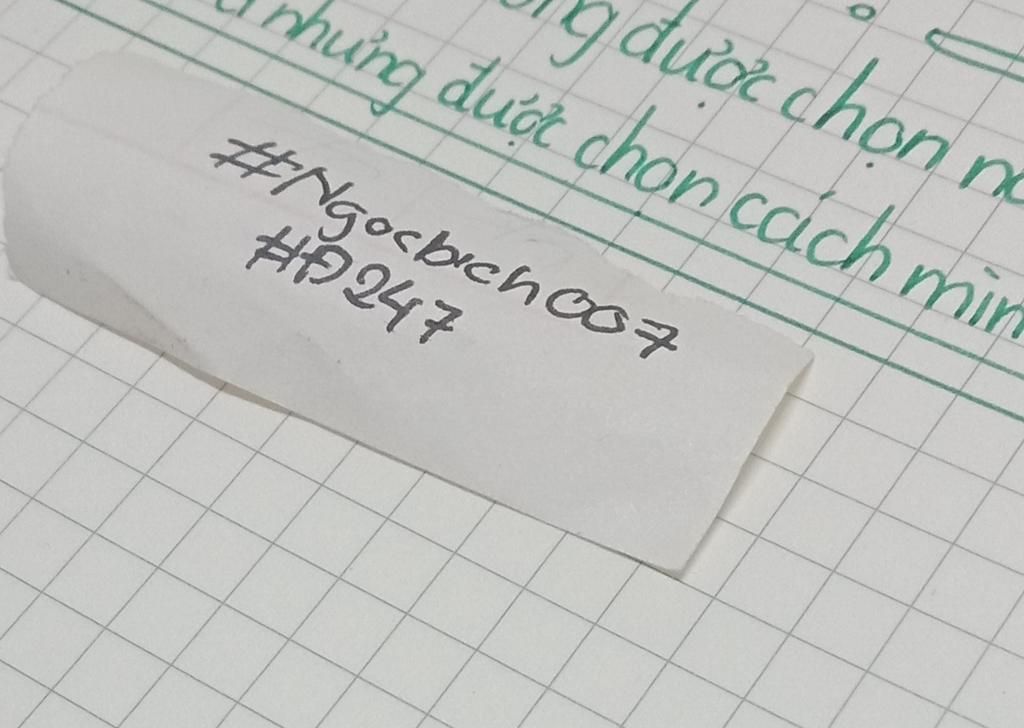 được chọn
nhưng được chọn cách
#Ngocbich007
#Đ247